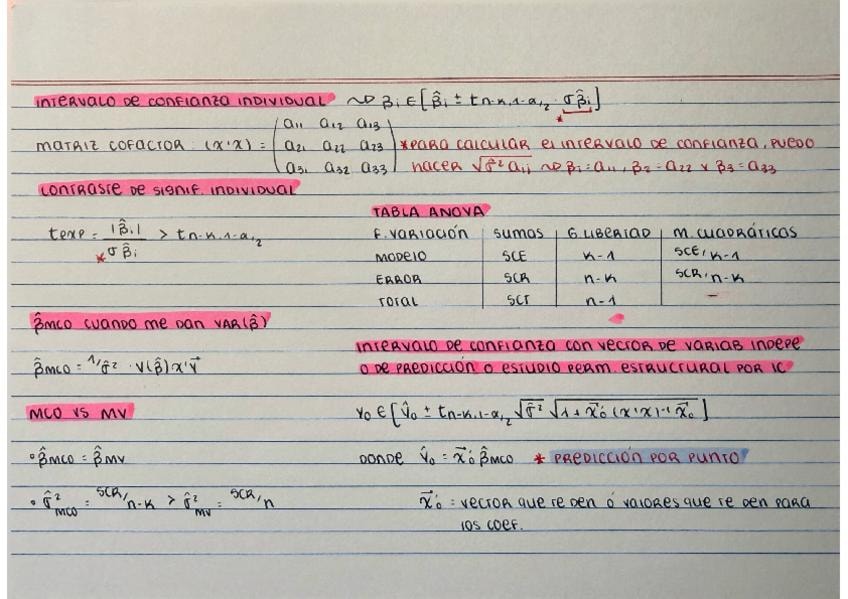 INTERVALO DE CONFIANZA INDIVIDUAL ~> βi ∈ [β̂i ± tn-k,1-α/2 · σβ̂i]
*
MATRIZ COFACTOR: (X'X) = (a11 a12 a13
a21 a22 a23
a31 a32 a33)
*PARA CALCULAR EL INTERVALO DE CONFIANZA, PUEDO
HACER √σ̂² aij ~> β1=a11, β2=a22 Y β3=a33
CONTRASTE DE SIGNIF. INDIVIDUAL
texp = |β̂i| / *σβ̂i > tn-k,1-α/2
TABLA ANOVA
F. VARIACIÓN SUMAS G. LIBERTAD M. CUADRÁTICAS
MODELO SCE K-1 SCE/K-1
ERROR SCR n-K SCR/n-K
TOTAL SCT n-1 -
β̂MCO CUANDO ME DAN VAR(β̂)
β̂MCO = 1/σ̂² · V(β̂)X'Y⃗
INTERVALO DE CONFIANZA CON VECTOR DE VARIAB INDEPE
O DE PREDICCIÓN O ESTUDIO PERM. ESTRUCTURAL POR IC
Y0 ∈ [Ŷ0 ± tn-k,1-α/2 √σ̂² √1+X⃗'0 (X'X)-1 X⃗0]
DONDE Ŷ0 = X⃗'0 β̂MCO * PREDICCIÓN POR PUNTO
X⃗'0 = VECTOR QUE TE DEN Ó VALORES QUE TE DEN PARA
LOS COEF.
MCO VS MV
° β̂MCO = β̂MV
° σ̂²MCO = SCR/n-K > σ̂²MV = SCR/n